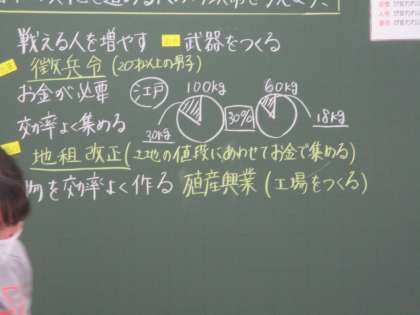 戦える人を増やす 武器をつくる
徴兵令(20才以上の男子)
お金が必要 江戸 100kg 60kg
効率よく集める 30kg 30% 18kg
地租改正(土地の値段にあわせてお金で集める)
物を効率よく作る 殖産興業(工場をつくる)